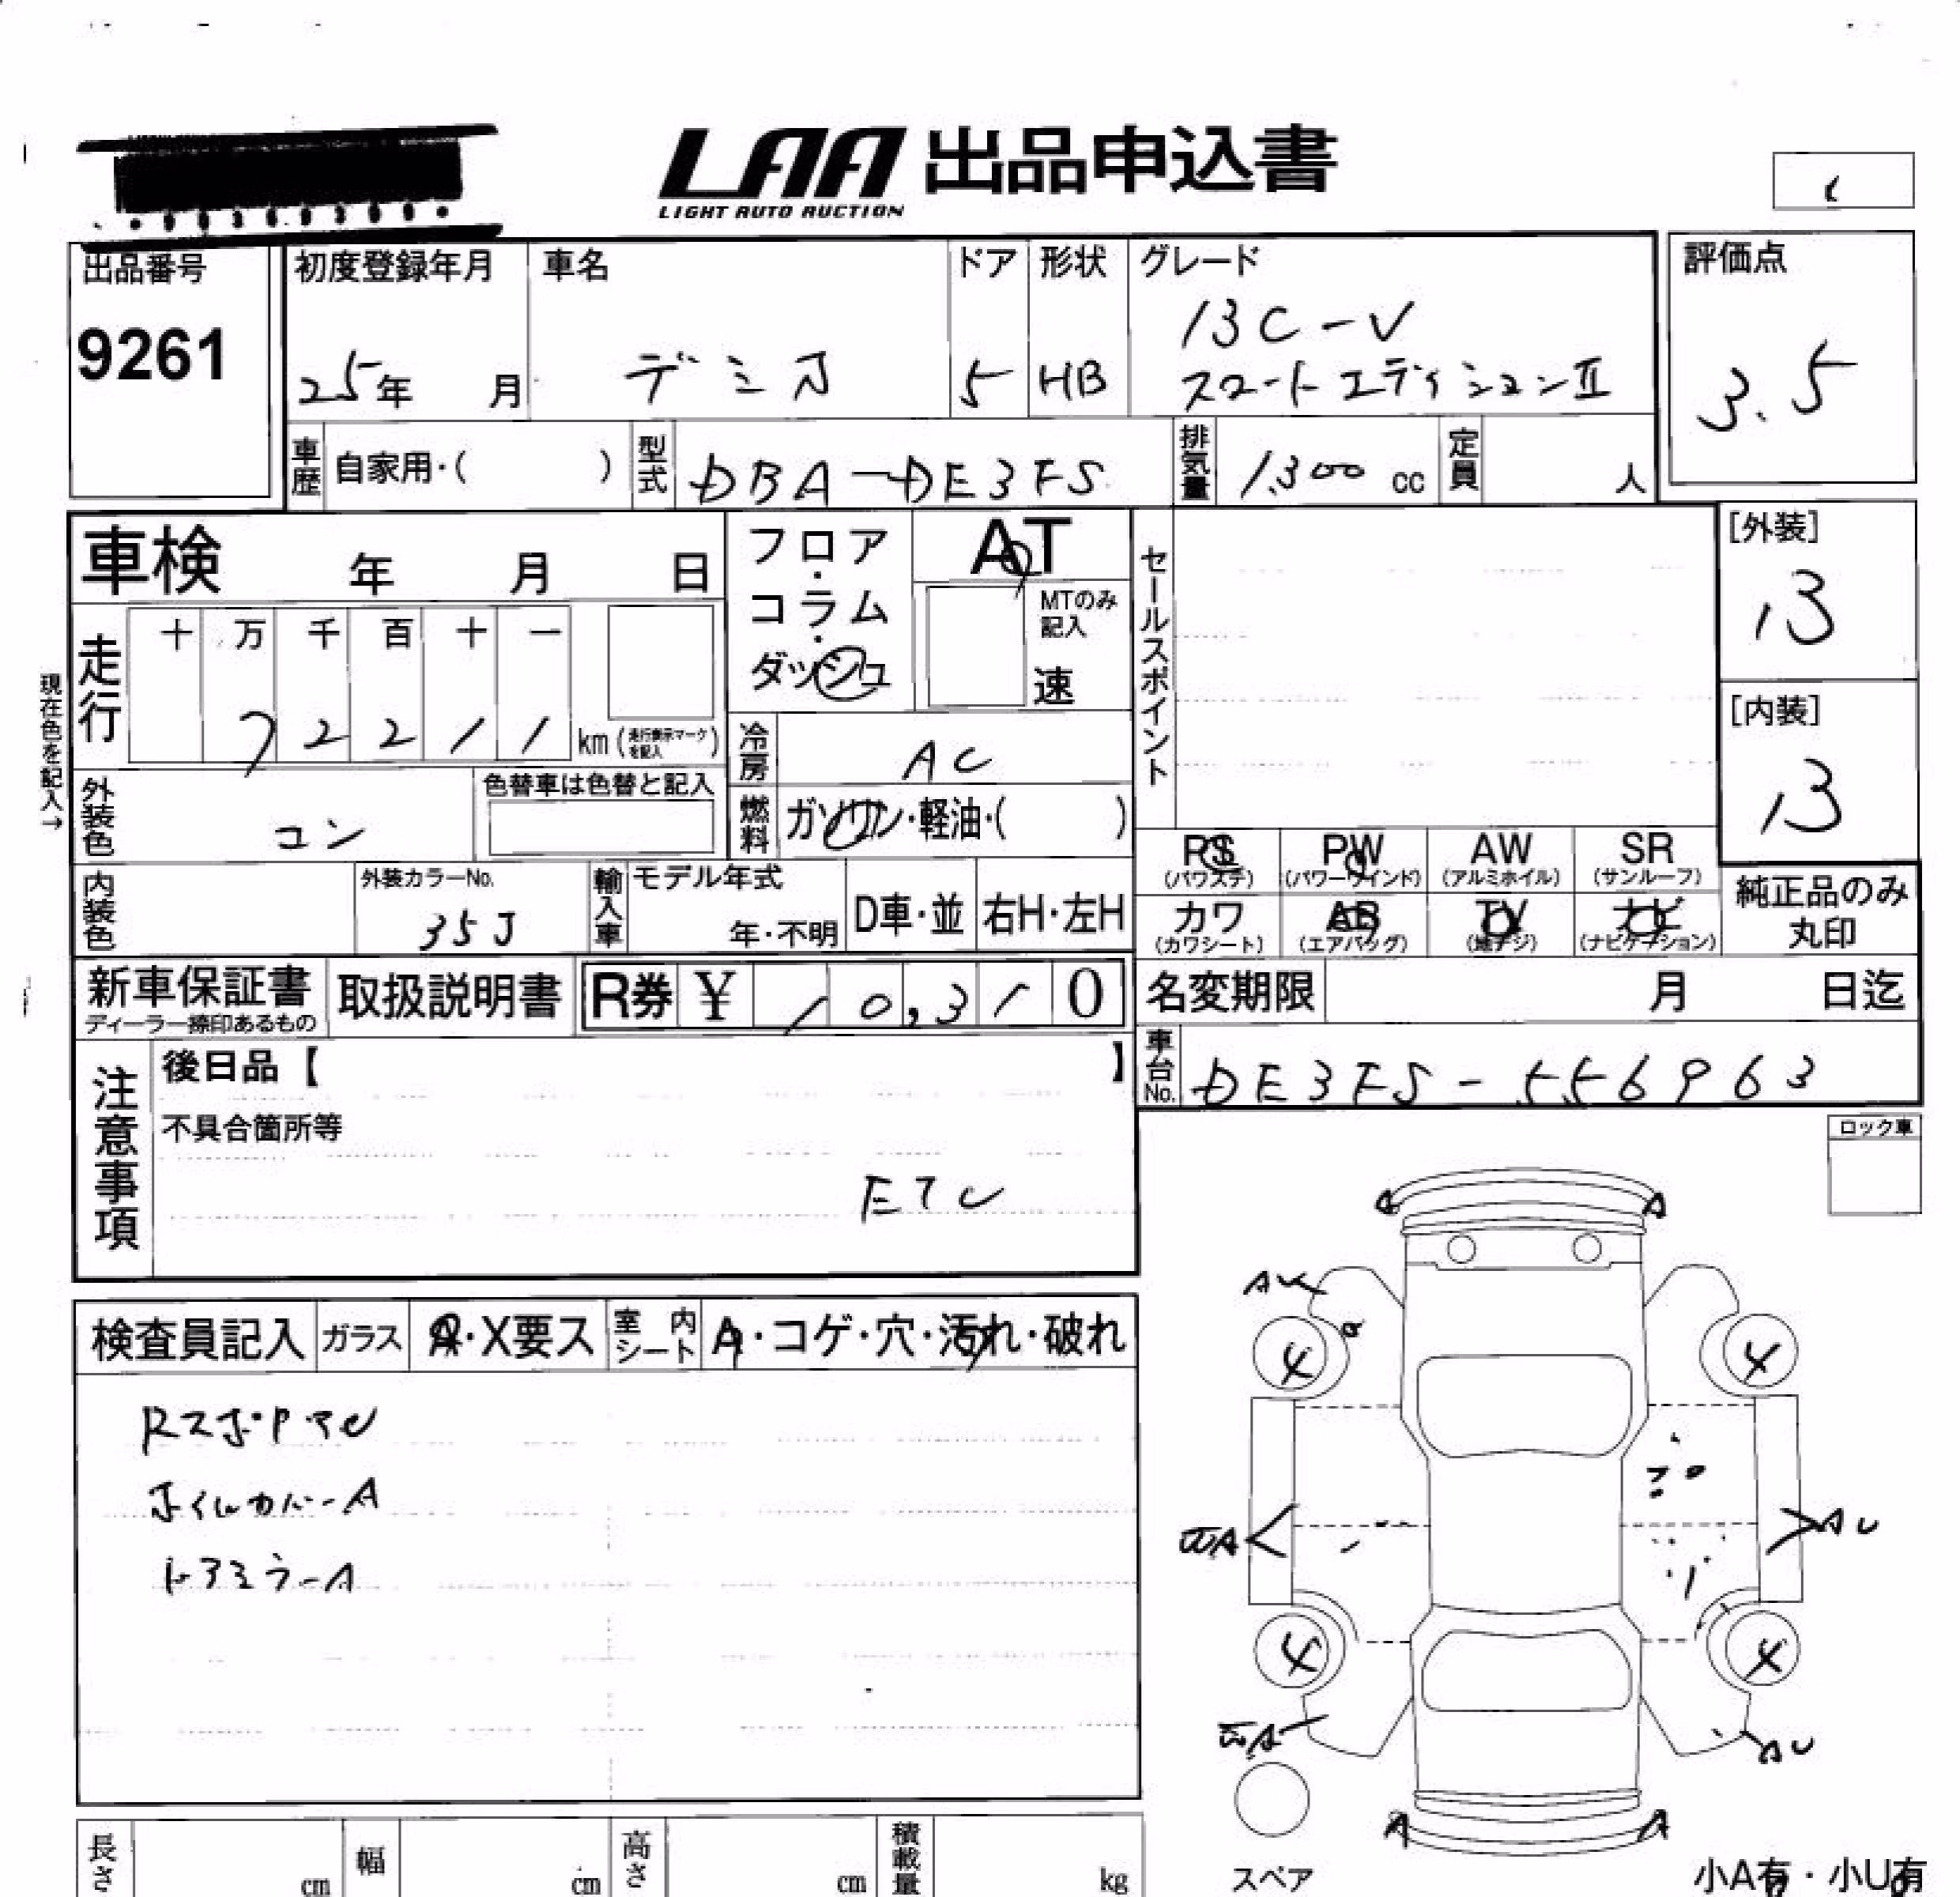 LAA 出品申込書
LIGHT AUTO AUCTION
出品番号
9261
初度登録年月
25年 月
車名
デミオ
ドア
5
形状
HB
グレード
13C-V
スマートエディションⅡ
評価点
3.5
車歴 自家用・( )
型式 DBA-DE3FS
排気量 1,300 cc
定員 人
車検 年 月 日
フロア・コラム・ダッシュ
AT
MTのみ記入
速
セールスポイント
[外装]
B
[内装]
B
現在色を記入→
走行
十 万 千 百 十 一
7 2 2 1 1 km (走行表示マークを記入)
冷房 AC
外装色 コン
色替車は色替と記入
燃料 ガソリン・軽油・( )
内装色
外装カラーNo.
35J
輸入車 モデル年式
年・不明
D車・並
右H・左H
PS (パワステ)
PW (パワーウインド)
AW (アルミホイル)
SR (サンルーフ)
カワ (カワシート)
AB (エアバッグ)
TV (地デジ)
ナビ (ナビゲーション)
純正品のみ
丸印
新車保証書
ディーラー捺印あるもの
取扱説明書
R券 ¥ 10,310
名変期限 月 日迄
車台No. DE3FS-556963
注意事項
後日品【 】
不具合箇所等
ETC
ロック車
検査員記入
ガラス A・X要ス
室内シート A・コゲ・穴・汚れ・破れ
ホイルカバーA
ドアミラーA
A A
AU
4 4
AU
4 4
AU
A A
スペア
長さ cm
幅 cm
高さ cm
積載量 kg
小A有・小U有